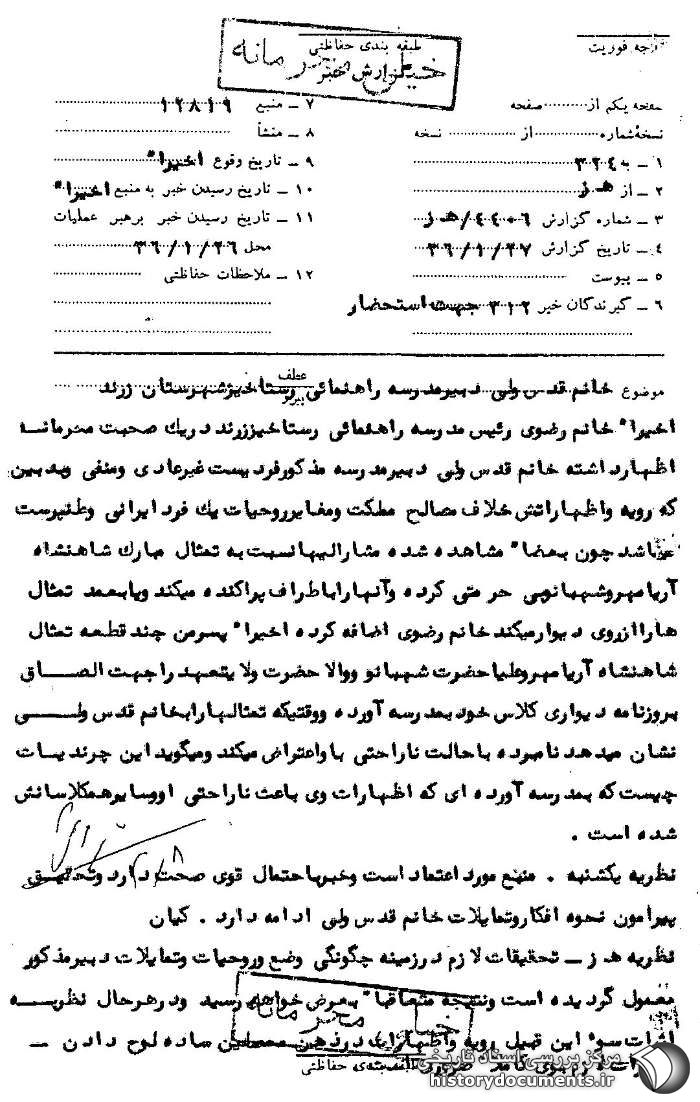 درجه فوریت
طبقه بندی حفاظتی
گزارش خبر
خیلی محرمانه
صفحه یکم از صفحه
نسخهٔ شماره از نسخه
۱ – به ۳۲۴
۲ – از هـ ز
۳ – شماره گزارش ۴۴۰۶/هـ ز
۴ – تاریخ گزارش ۳۶/۱/۲۷
۵ – پیوست
۶ – گیرندگان خبر ۳۱۲ جهت استحضار
۷ – منبع ۱۲۸۱۹
۸ – منشأ
۹ – تاریخ وقوع اخیرا"
۱۰ – تاریخ رسیدن خبر به منبع اخیرا"
۱۱ – تاریخ رسیدن خبر برهبر عملیات
محل ۳۶/۱/۲۶
۱۲ – ملاحظات حفاظتی
موضوع خانم قدس ولی دبیرمدرسه راهنمائی رستاخیزشهرستان زرند
عطف
پیرو
اخیرا" خانم رضوی رئیس مدرسه راهنمائی رستاخیززرند دریك صحبت محرمانه
اظهارداشته خانم قدس ولی دبیرمدرسه مذکورفردیست غیرعادی ومنفی وبدبین
که رویه واظهاراتش خلاف مصالح مملکت ومغایرروحیات یك فرد ایرانی وطنپرست
میباشد چون بعضا" مشاهده شده مشارالیهانسبت به تمثال مبارك شاهنشاه
آریامهروشهبانوبی حرمتی کرده وآنهاراباطراف پراکنده میکند ویابعمد تمثال
هاراازروی دیوارمیکند خانم رضوی اضافه کرده اخیرا" پسرمن چند قطعه تمثال
شاهنشاه آریامهروعلیاحضرت شهبانو ووالا حضرت ولایتعهد راجهت الصاق
بروزنامه دیواری کلاس خود بمدرسه آورده ووقتیکه تمثالهارابخانم قدس ولی
نشان میدهد نامبرده باحالت ناراحتی باواعتراض میکند ومیگوید این چرندیات
چیست که بمدرسه آورده ای که اظهارات وی باعث ناراحتی اووسایرهمکلاسانش
شده است .
نظریه یکشنبه . منبع مورد اعتماد است وخبرباحتمال قوی صحت دارد وتحقیق
پیرامون نحوه افکاروتمایلات خانم قدس ولی ادامه دارد . کیان
نظریه هـ ز – تحقیقات لازم درزمینه چگونگی وضع وروحیات وتمایلات دبیرمذکور
معمول گردیده است ونتیجه متعاقبا" بعرض خواهد رسید ودرهرحال نظربه
اثرات سوء این قبیل رویه واظهارات درذهن محصلین ساده لوح دادن –
خیلی محرمانه
طبقه بندی حفاظتی
مرکز بررسی اسناد تاریخی
historydocuments.ir